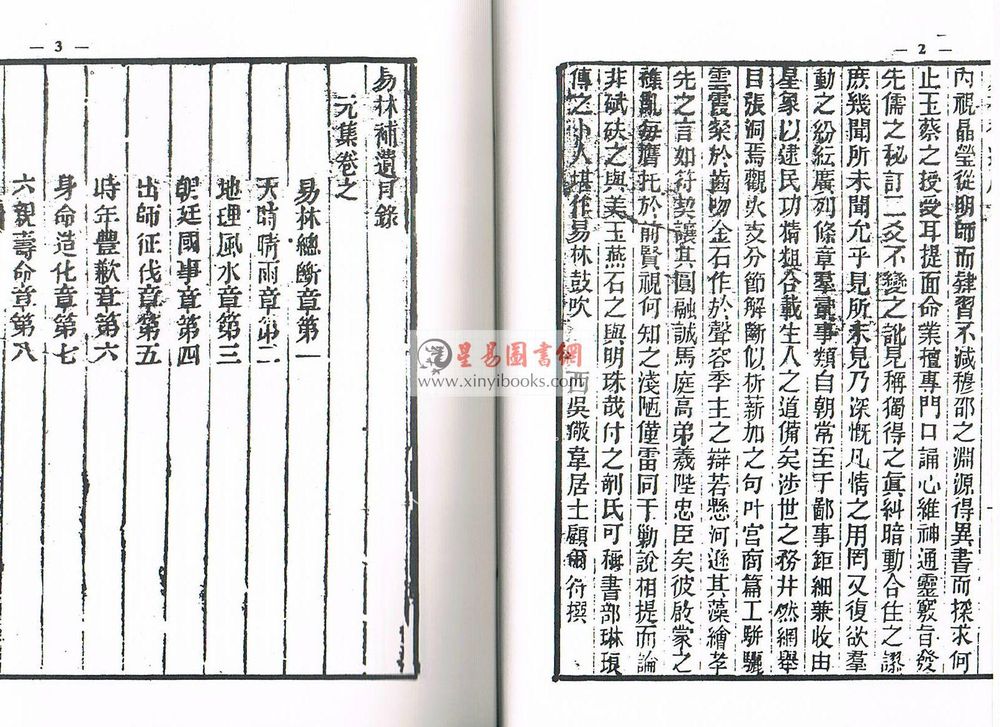 — 2 —
內視晶瑩從明師而肄習不減穆邵之淵源得異書而探求何
止玉蔡之授受耳提面命業擅專門口誦心維神通靈竅旨發
先儒之秘訂二爻不變之訛見稱獨得之眞糾暗動合住之謬
庶幾聞所未聞允乎見所未見乃深慨凡情之用罔又復欲羣
動之紛紜廣列條章羣彙事類自朝常至于鄙事鉅細兼收由
星象以逮民功精粗合載生人之道備矣涉世之務井然網舉
目張洞焉觀火支分節解斷似析薪加之句叶宮商篇工駢驪
雲霞粲於齒吻金石作於聲容季主之辯若懸河遜其藻繪孝
先之言如符契讓其圓融誠馬庭高弟羲陛忠臣矣彼啟蒙之
雜亂每贋托於前賢視何知之淺陋僅雷同于勦說相提而論
非碔砆之與美玉燕石之與明珠哉付之剞氏可稱書部琳琅
傳之小人堪作易林鼓吹
西吳 韋居士顧爾 撰
— 3 —
易林補遺目錄
元集卷之
易林總斷章第一
天時晴雨章第二
地理風水章第三
朝廷國事章第四
出師征伐章第五
時年豐歉章第六
身命造化章第七
六親壽命章第八
星易圖書網
www.xinyibooks.com